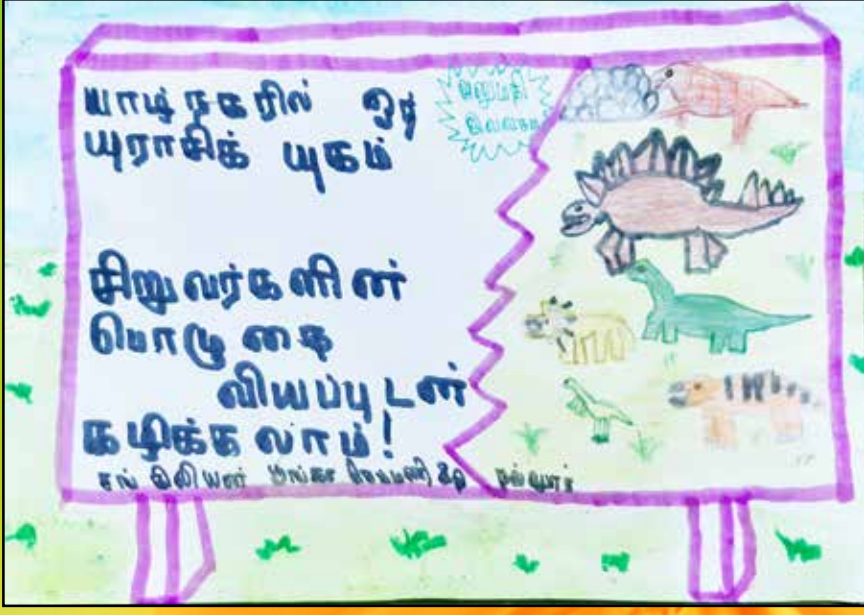 யாழ் நகரில் ஒர்
யுராசிக் யுகம்
அனுமதி
இலவசம்
சிறுவர்களின்
பொழுதை
வியப்புடன்
கழிக்கலாம்!
நல்லூர்